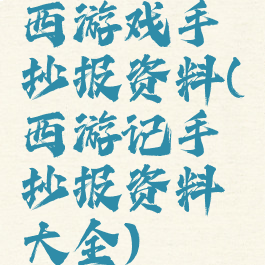 西游戏手
抄报资料(
西游记手
抄报资料
大全)